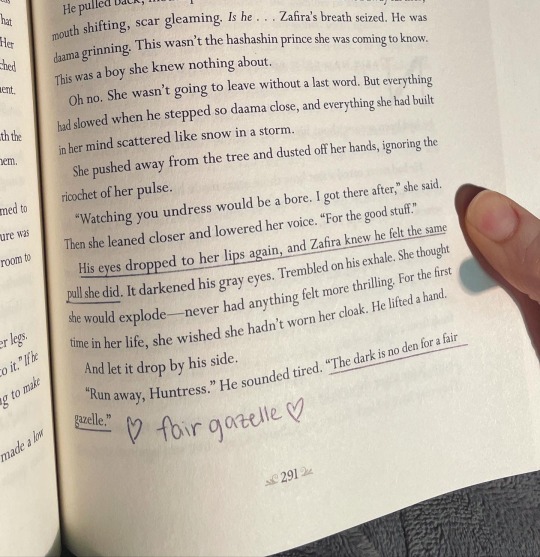 hat
Her
ched
ent.
th the
nem.
med to
ure was
room to
er legs.
to it." If he
ng to make
made a low
He pulled back,
mouth shifting, scar gleaming. Is he . . . Zafira's breath seized. He was
daama grinning. This wasn't the hashashin prince she was coming to know.
This was a boy she knew nothing about.
Oh no. She wasn't going to leave without a last word. But everything
had slowed when he stepped so daama close, and everything she had built
in her mind scattered like snow in a storm.
She pushed away from the tree and dusted off her hands, ignoring the
ricochet of her pulse.
"Watching you undress would be a bore. I got there after," she said.
Then she leaned closer and lowered her voice. "For the good stuff."
His eyes dropped to her lips again, and Zafira knew he felt the same
pull she did. It darkened his gray eyes. Trembled on his exhale. She thought
she would explode—never had anything felt more thrilling. For the first
time in her life, she wished she hadn't worn her cloak. He lifted a hand.
And let it drop by his side.
"Run away, Huntress." He sounded tired. "The dark is no den for a fair
gazelle." ♡ fair gazelle ♡
291